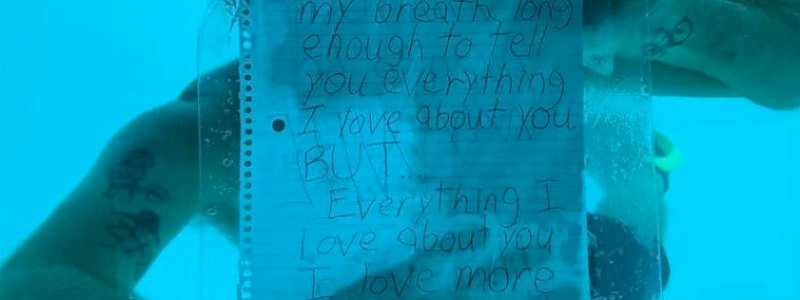 my breath long
enough to tell
you everything
I love about you.
BUT...
Everything I
love about you
I love more